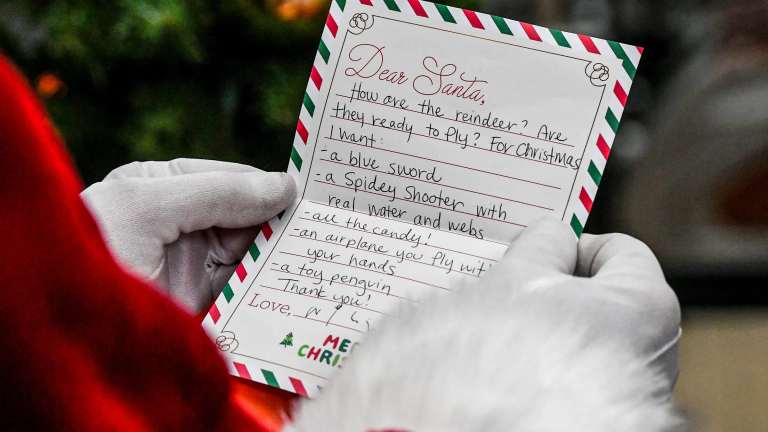 Dear Santa,
How are the reindeer? Are
they ready to fly? For Christmas
I want:
- a blue sword
- a Spidey Shooter with
real water and webs
- all the candy!
- an airplane you fly wit
your hands
- a toy penguin
Thank you!
Love,
ME
CHRIS